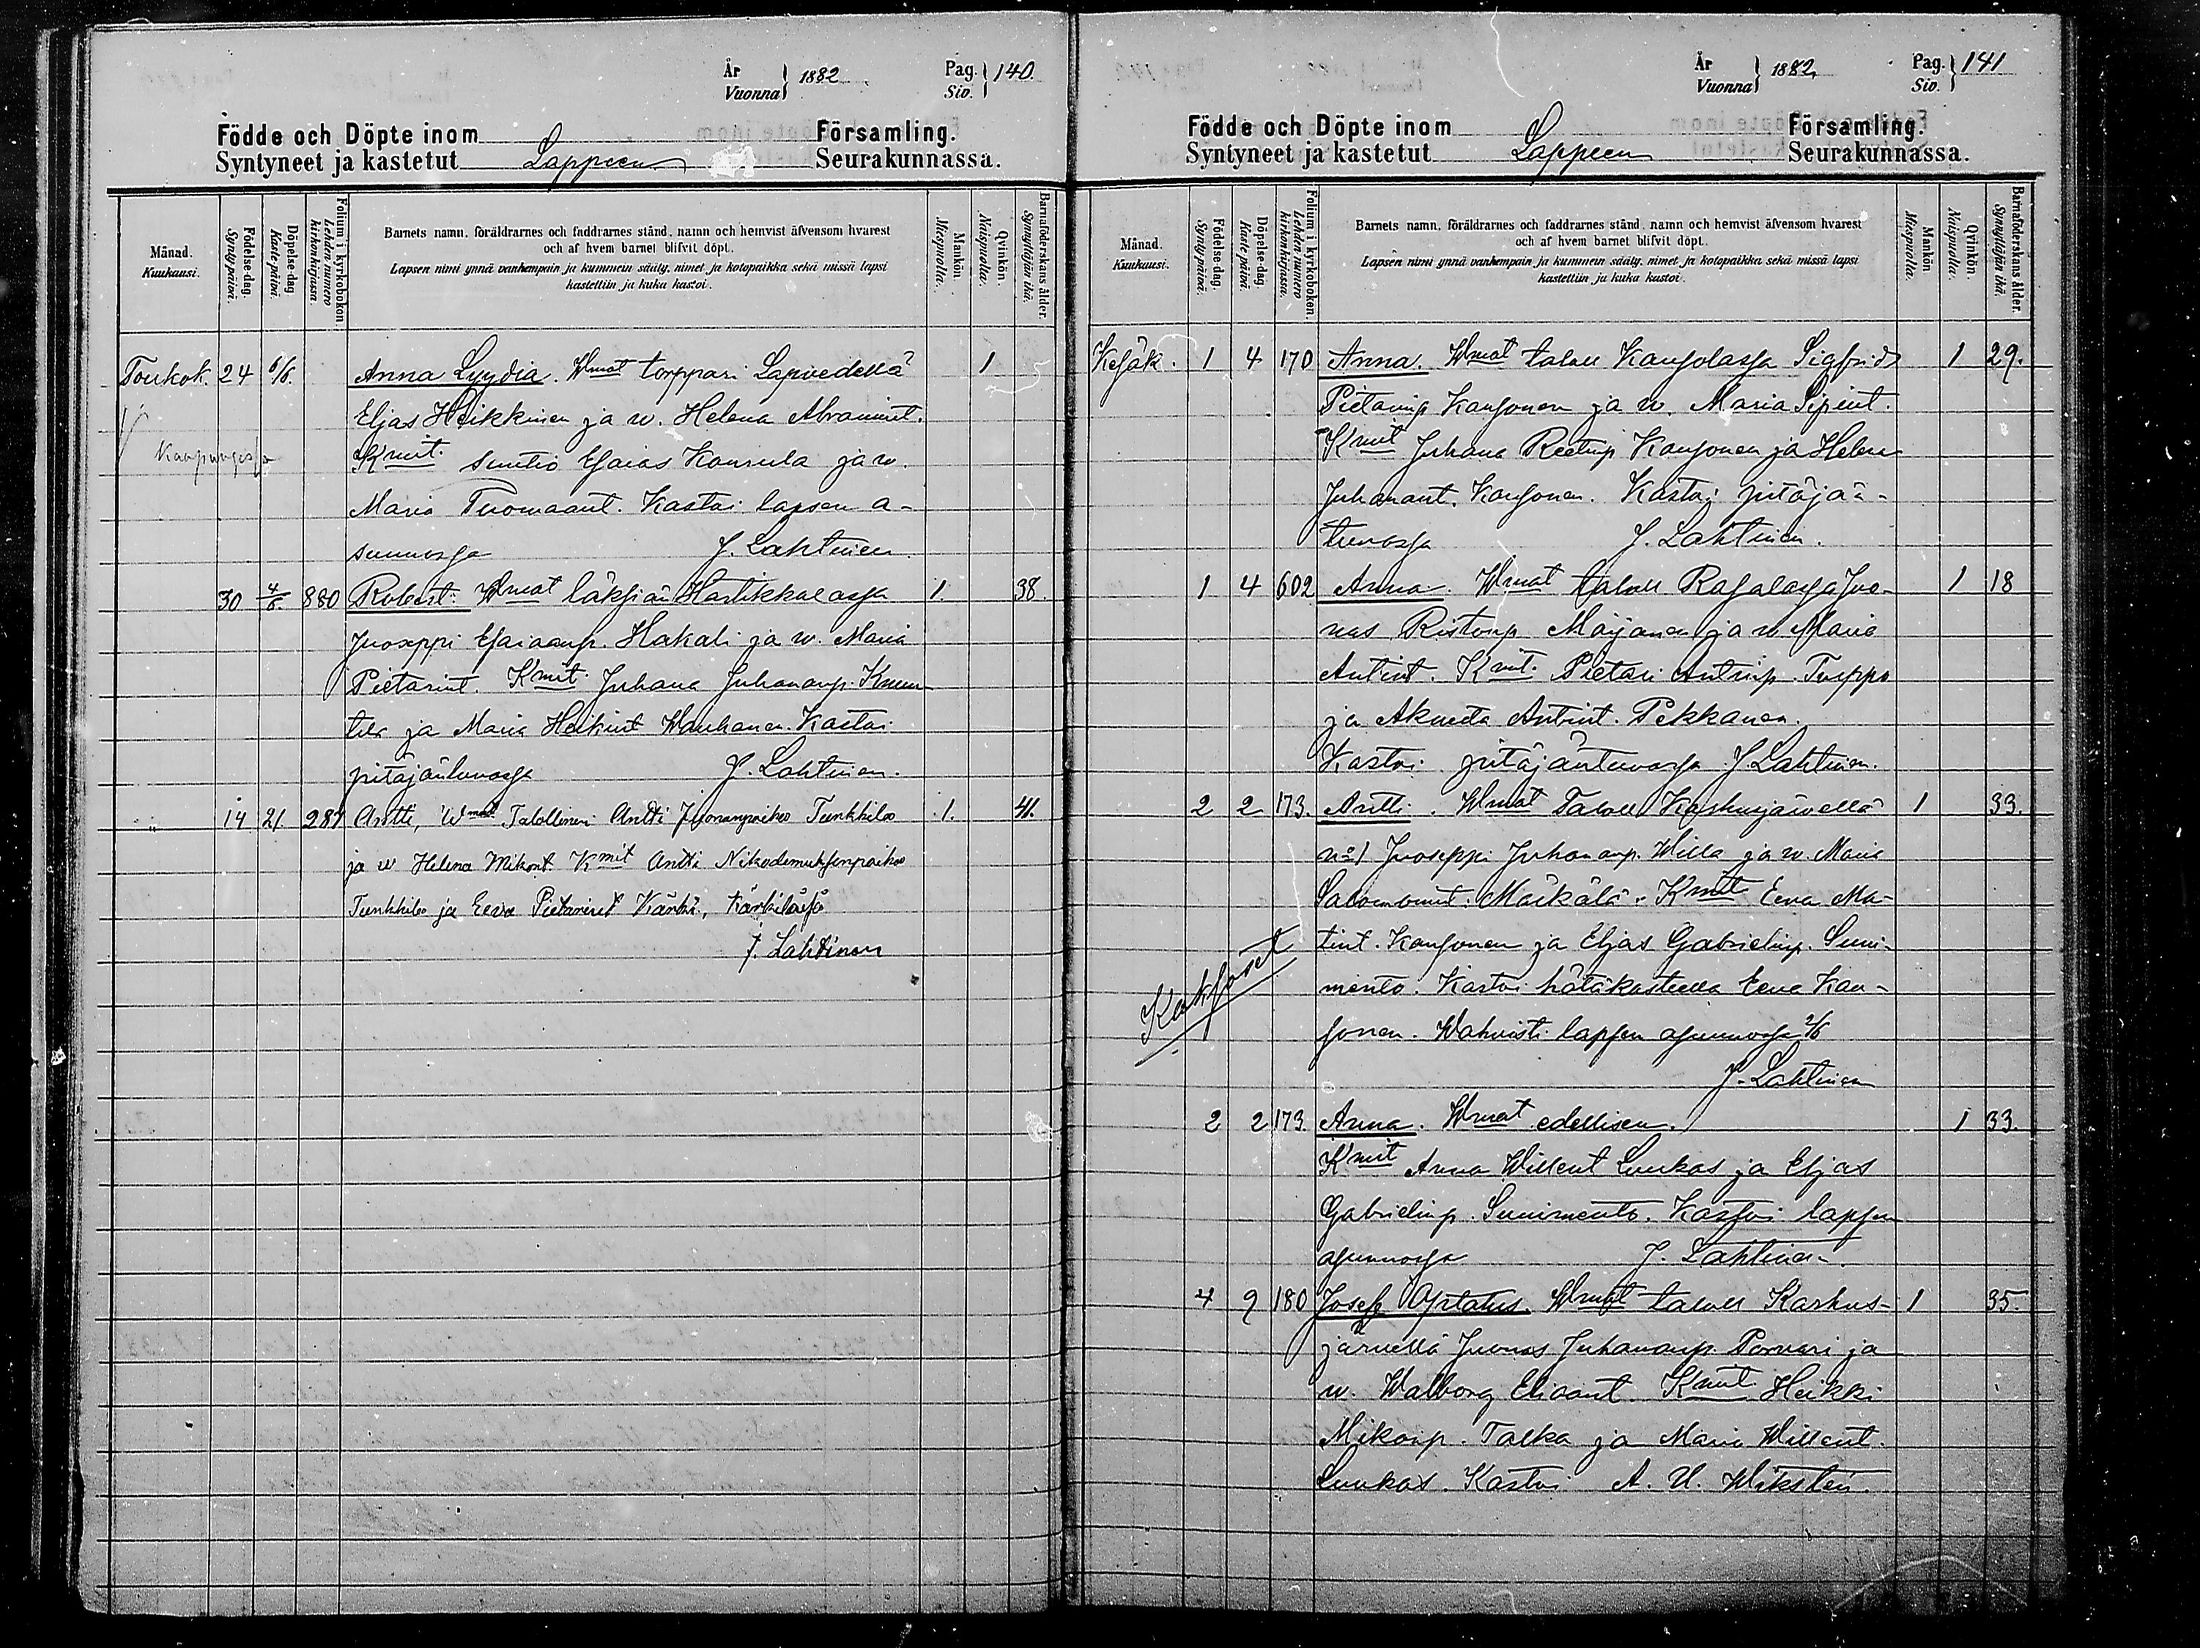 År Vuonna } 1882. Pag. Siv. } 140
Födde och Döpte inom Församling.
Syntyneet ja kastetut Lappeen Seurakunnassa.
Månad. Kuukausi.
Födelse-dag. Synty-päivä.
Döpelse-dag Kaste-päivä.
Folium i kyrkoboken. Lehden numero kirkonkirjassa.
Barnets namn, föräldrarnes och faddrarnes stånd, namn och hemvist äfvensom hvarest
och af hvem barnet blifvit döpt.
Lapsen nimi ynnä vanhempain ja kummein sääty, nimet ja kotopaikka sekä missä lapsi
kastettiin ja kuka kastoi.
Mankön. Miespuolia.
Qvinkön. Naispuolia.
Barnaföderskans ålder. Synnyttäjän ikä.
Toukok. 24 6/6. Anna Lyydia. Wmat torppari Lapvedellä 1
Eljas Heikkinen ja w. Helena Abramint.
Kaupungissa Kmit. suntio Esaias Konsula ja w.
Maria Tuomaant. Kastoi lapsen a-
sunnossa J. Lahtinen.
30 4/6. 880 Robert. Wmat läksiän Hartikkalassa 1. 38.
Juoseppi Esaiaanp. Hakali ja w. Maria
Pietarint. Kmit. Juhana Juhananp. Kuun-
tila ja Maria Heikint Wanhanen. Kastoi
pitäjäntuvassa J. Lahtinen.
" 14 21. 287 Antti, Wmat. Talollinen Antti Juonanpoika Tunkkiloo 1. 41.
ja w Helena Mikont. Kmit Antti Nikodemuksenpoika
Tunkkiloo ja Eeva Pietarint Kärki, Kärkilässä
J. Lahtinen
År Vuonna } 1882. Pag. Siv. } 141
Födde och Döpte inom Församling.
Syntyneet ja kastetut Lappeen Seurakunnassa.
Månad. Kuukausi.
Födelse-dag. Synty-päivä.
Döpelse-dag. Kaste-päivä.
Folium i kyrkoboken. Lehden numero kirkonkirjassa.
Barnets namn, föräldrarnes och faddrarnes stånd, namn och hemvist äfvensom hvarest
och af hvem barnet blifvit döpt.
Lapsen nimi ynnä vanhempain ja kummein sääty, nimet ja kotopaikka sekä missä lapsi
kastettiin ja kuka kastoi.
Mankön Miespuolia.
Qvinkön. Naispuolia.
Barnaföderskans ålder. Synnyttäjän ikä.
Kesäk. 1 4 170 Anna. Wmat taloll Kansolassa Sigfrid 1 29.
Pietarinp Kansonen ja w. Maria Sipint.
Kmit Juhana Reetinp Kansonen ja Helena
Juhanant. Kansonen. Kastoi pitäjän-
tuvassa J. Lahtinen.
1 4 602 Anna. Wmat taloll Rasalassa Joo- 1 18
nas Ristonp Marjanen ja w Maria
Antint. Kmit. Pietari Antinp. Turppo
ja Akneeta Antint. Pekkanen.
Kastoi pitäjäntuvassa J Lahtinen.
2 2 173. Antti. Wmat Taloll Karhusjärvellä 1 33.
no 1 Juoseppi Juhananp. Willa ja w. Maria
Salomonint. Mäikälä. Kmit Eeva Ma-
tint. Kansonen ja Eljas Gabrielinp. Suni-
mento. Kastoi hätäkasteella Eeva Kan-
sonen. Wahvisti lapsen asunnossa 2/6
J. Lahtinen
Kaksoset
2 2 173. Anna. Wmat edellisen. 1 33.
Kmit Anna Willent Luukas ja Eljas
Gabrielinp. Sunimento. Kastoi lapsen
asunnossa J. Lahtinen.
4 9 180 Josef Optatus. Wmat taloll Karhus- 1 35.
järvellä Juonas Juhananp. Porvari ja
w. Walborg Eliaant. Kmit Heikki
Mikonp. Talka ja Maria Willent.
Luukas. Kastoi A. U. Wikstén.